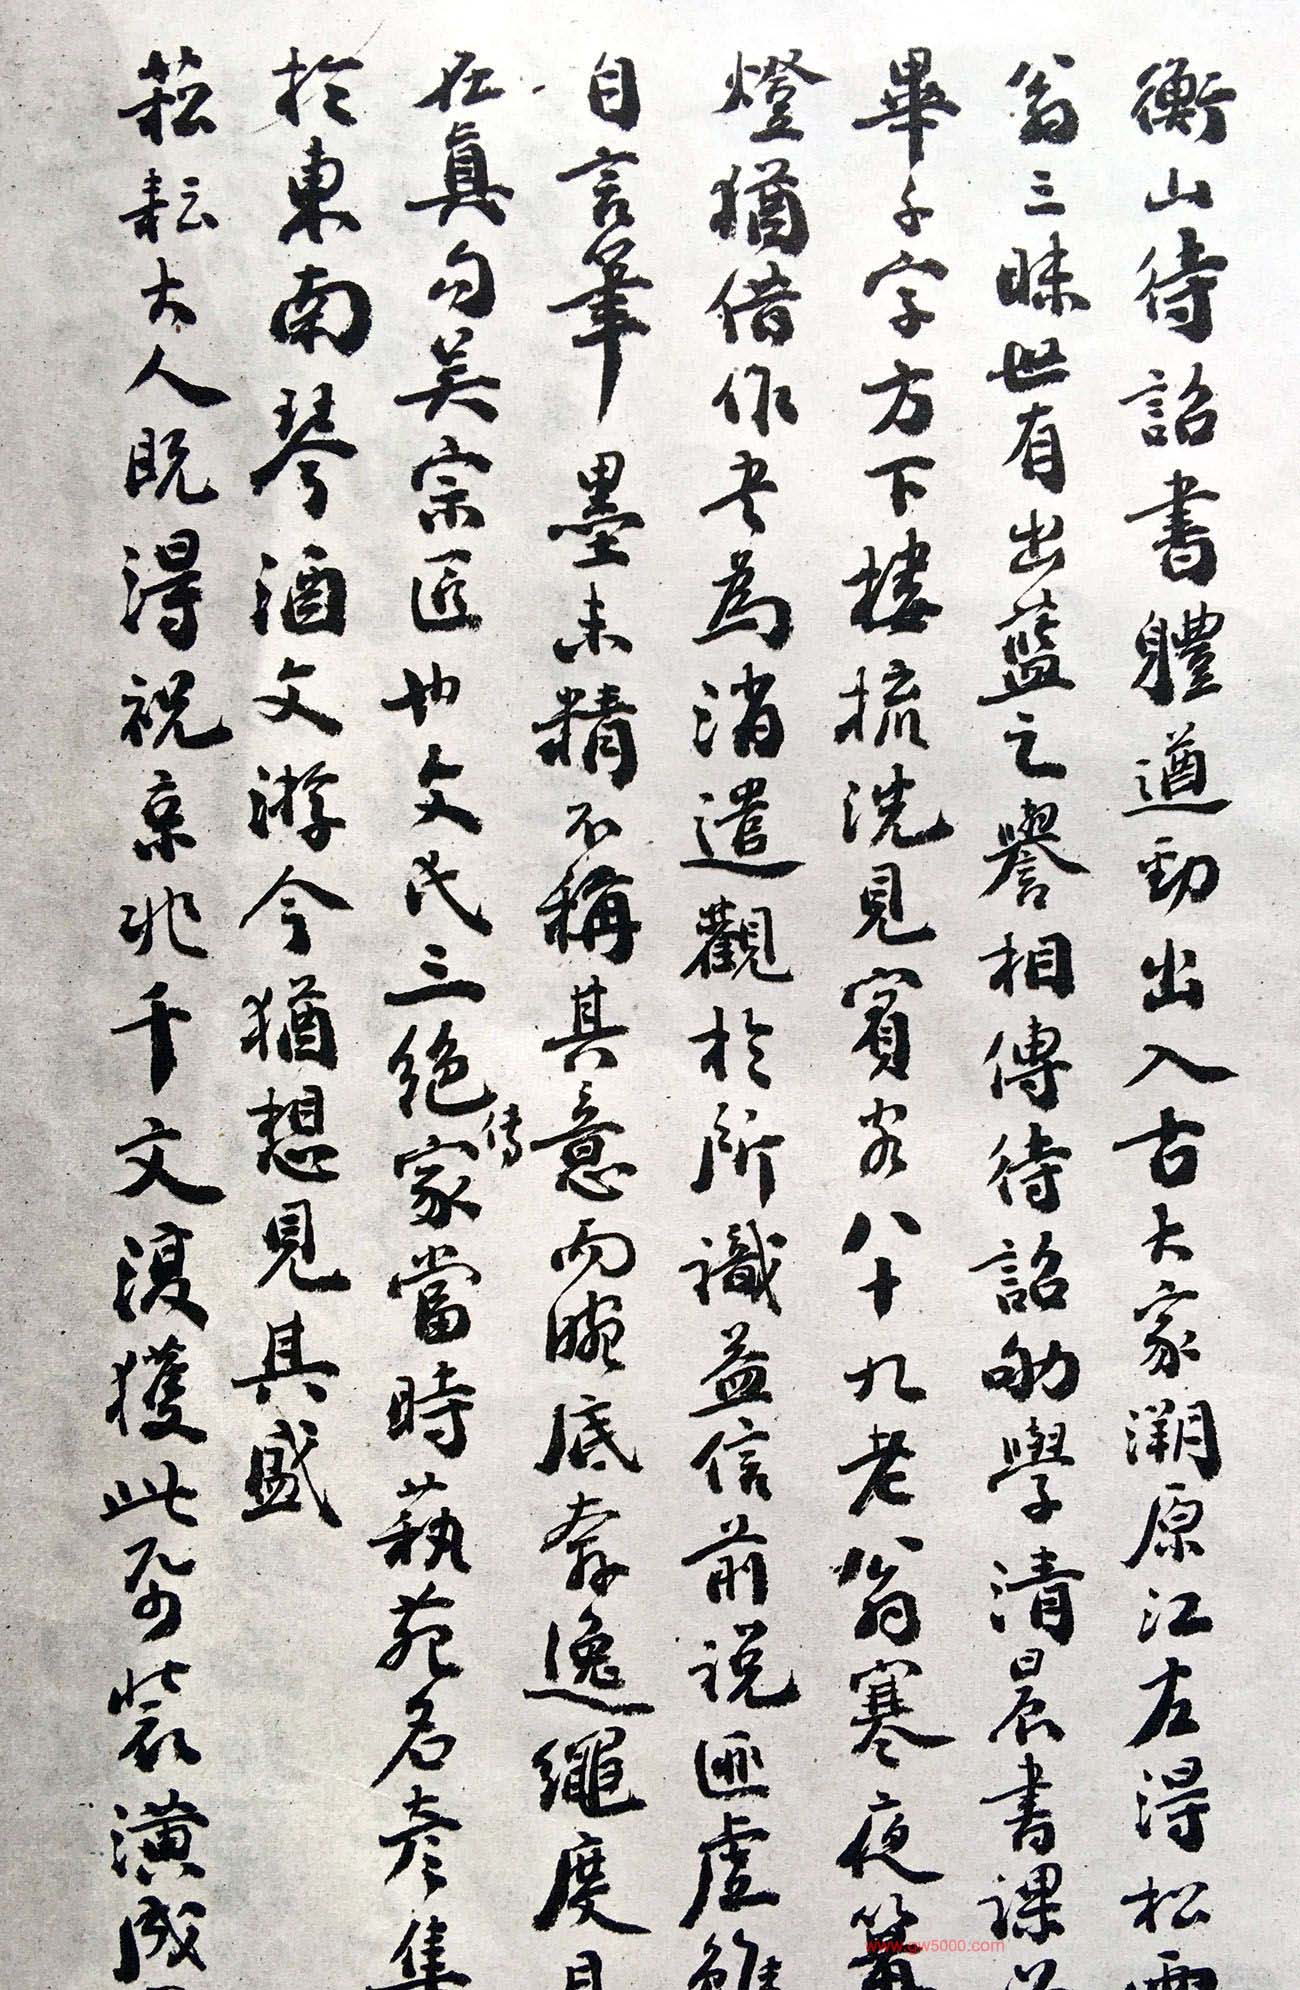 衡山待詔書體遒勁出入古大家溯原江左得松雪
翁三昧世有出藍之譽相傳待詔劬學清晨書課
畢千字方下樓梳洗見賓客八十九老翁寒夜篝
燈猶借作書為消遣觀於所識益信前說匪虛雖
自言筆墨未精不稱其意而腕底奔逸繩度具
在真勾吳宗匠也文氏三絕傳家當時藝苑名彥集
於東南琴酒文游今猶想見其盛
菘耘大人既得祝京兆千文復獲此冊裝潢成
www.gw5000.com